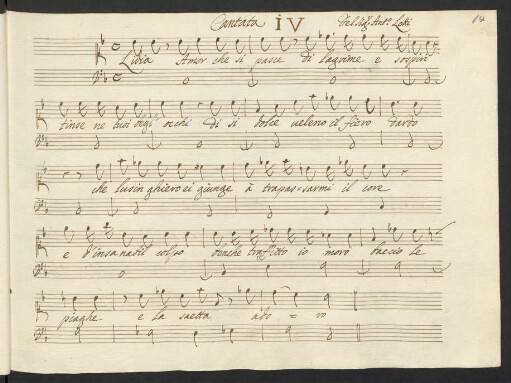 Cantata IV Del Sig.r Ant.o Lotti 14
Lidia Amor che si pasce di lagrime e sospiri
tinse ne tuoi begl' occhi di si dolce veleno il fiero dardo
che lusinghiero ei giunge à trapas=sarmi il core
e d'insanabil colpo benche traffitto io moro baccio le
piaghe e la saetta ado=ro